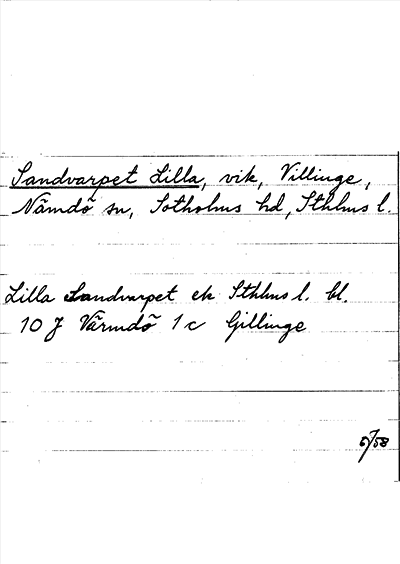 Sandvarpet Lilla, vik, Villinge,
Nämdö sn, Sotholms hd, Sthlms l.
Lilla Sandvarpet ek Sthlms l. bl.
10 J Värmdö 1c Gillinge
6/58